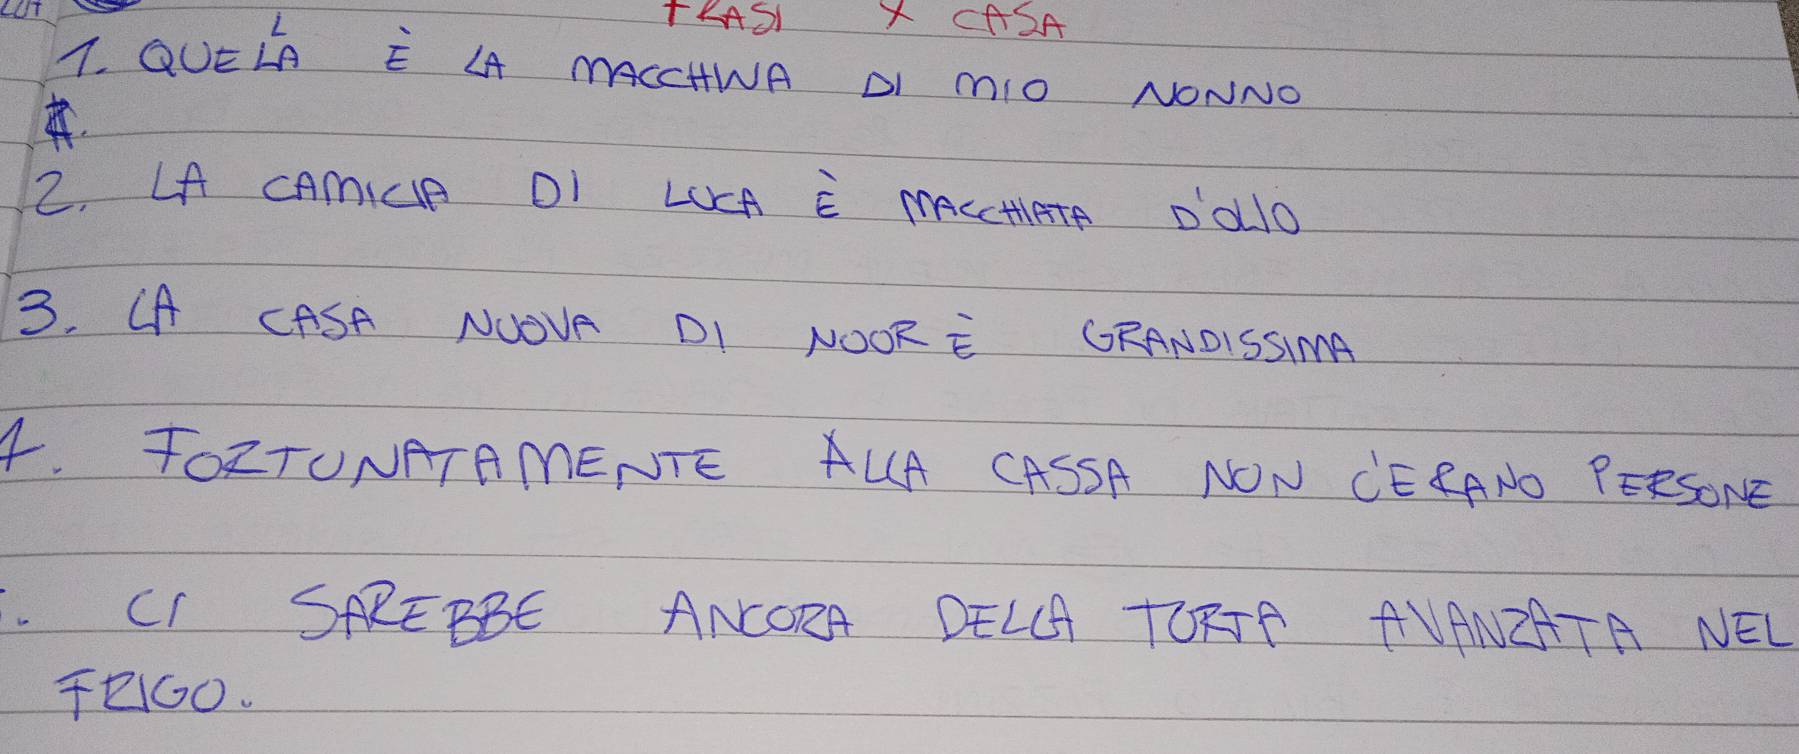 FRASI X CASA
1. QUELLA È LA MACCHINA DI MIO NONNO
2. LA CAMICIA DI LUCA È MACCHIATA D'OLIO
3. LA CASA NUOVA DI NOOR È GRANDISSIMA
4. FORTUNATAMENTE ALLA CASSA NON C'ERANO PERSONE
. CI SAREBBE ANCORA DELLA TORTA AVANZATA NEL
FRIGO.